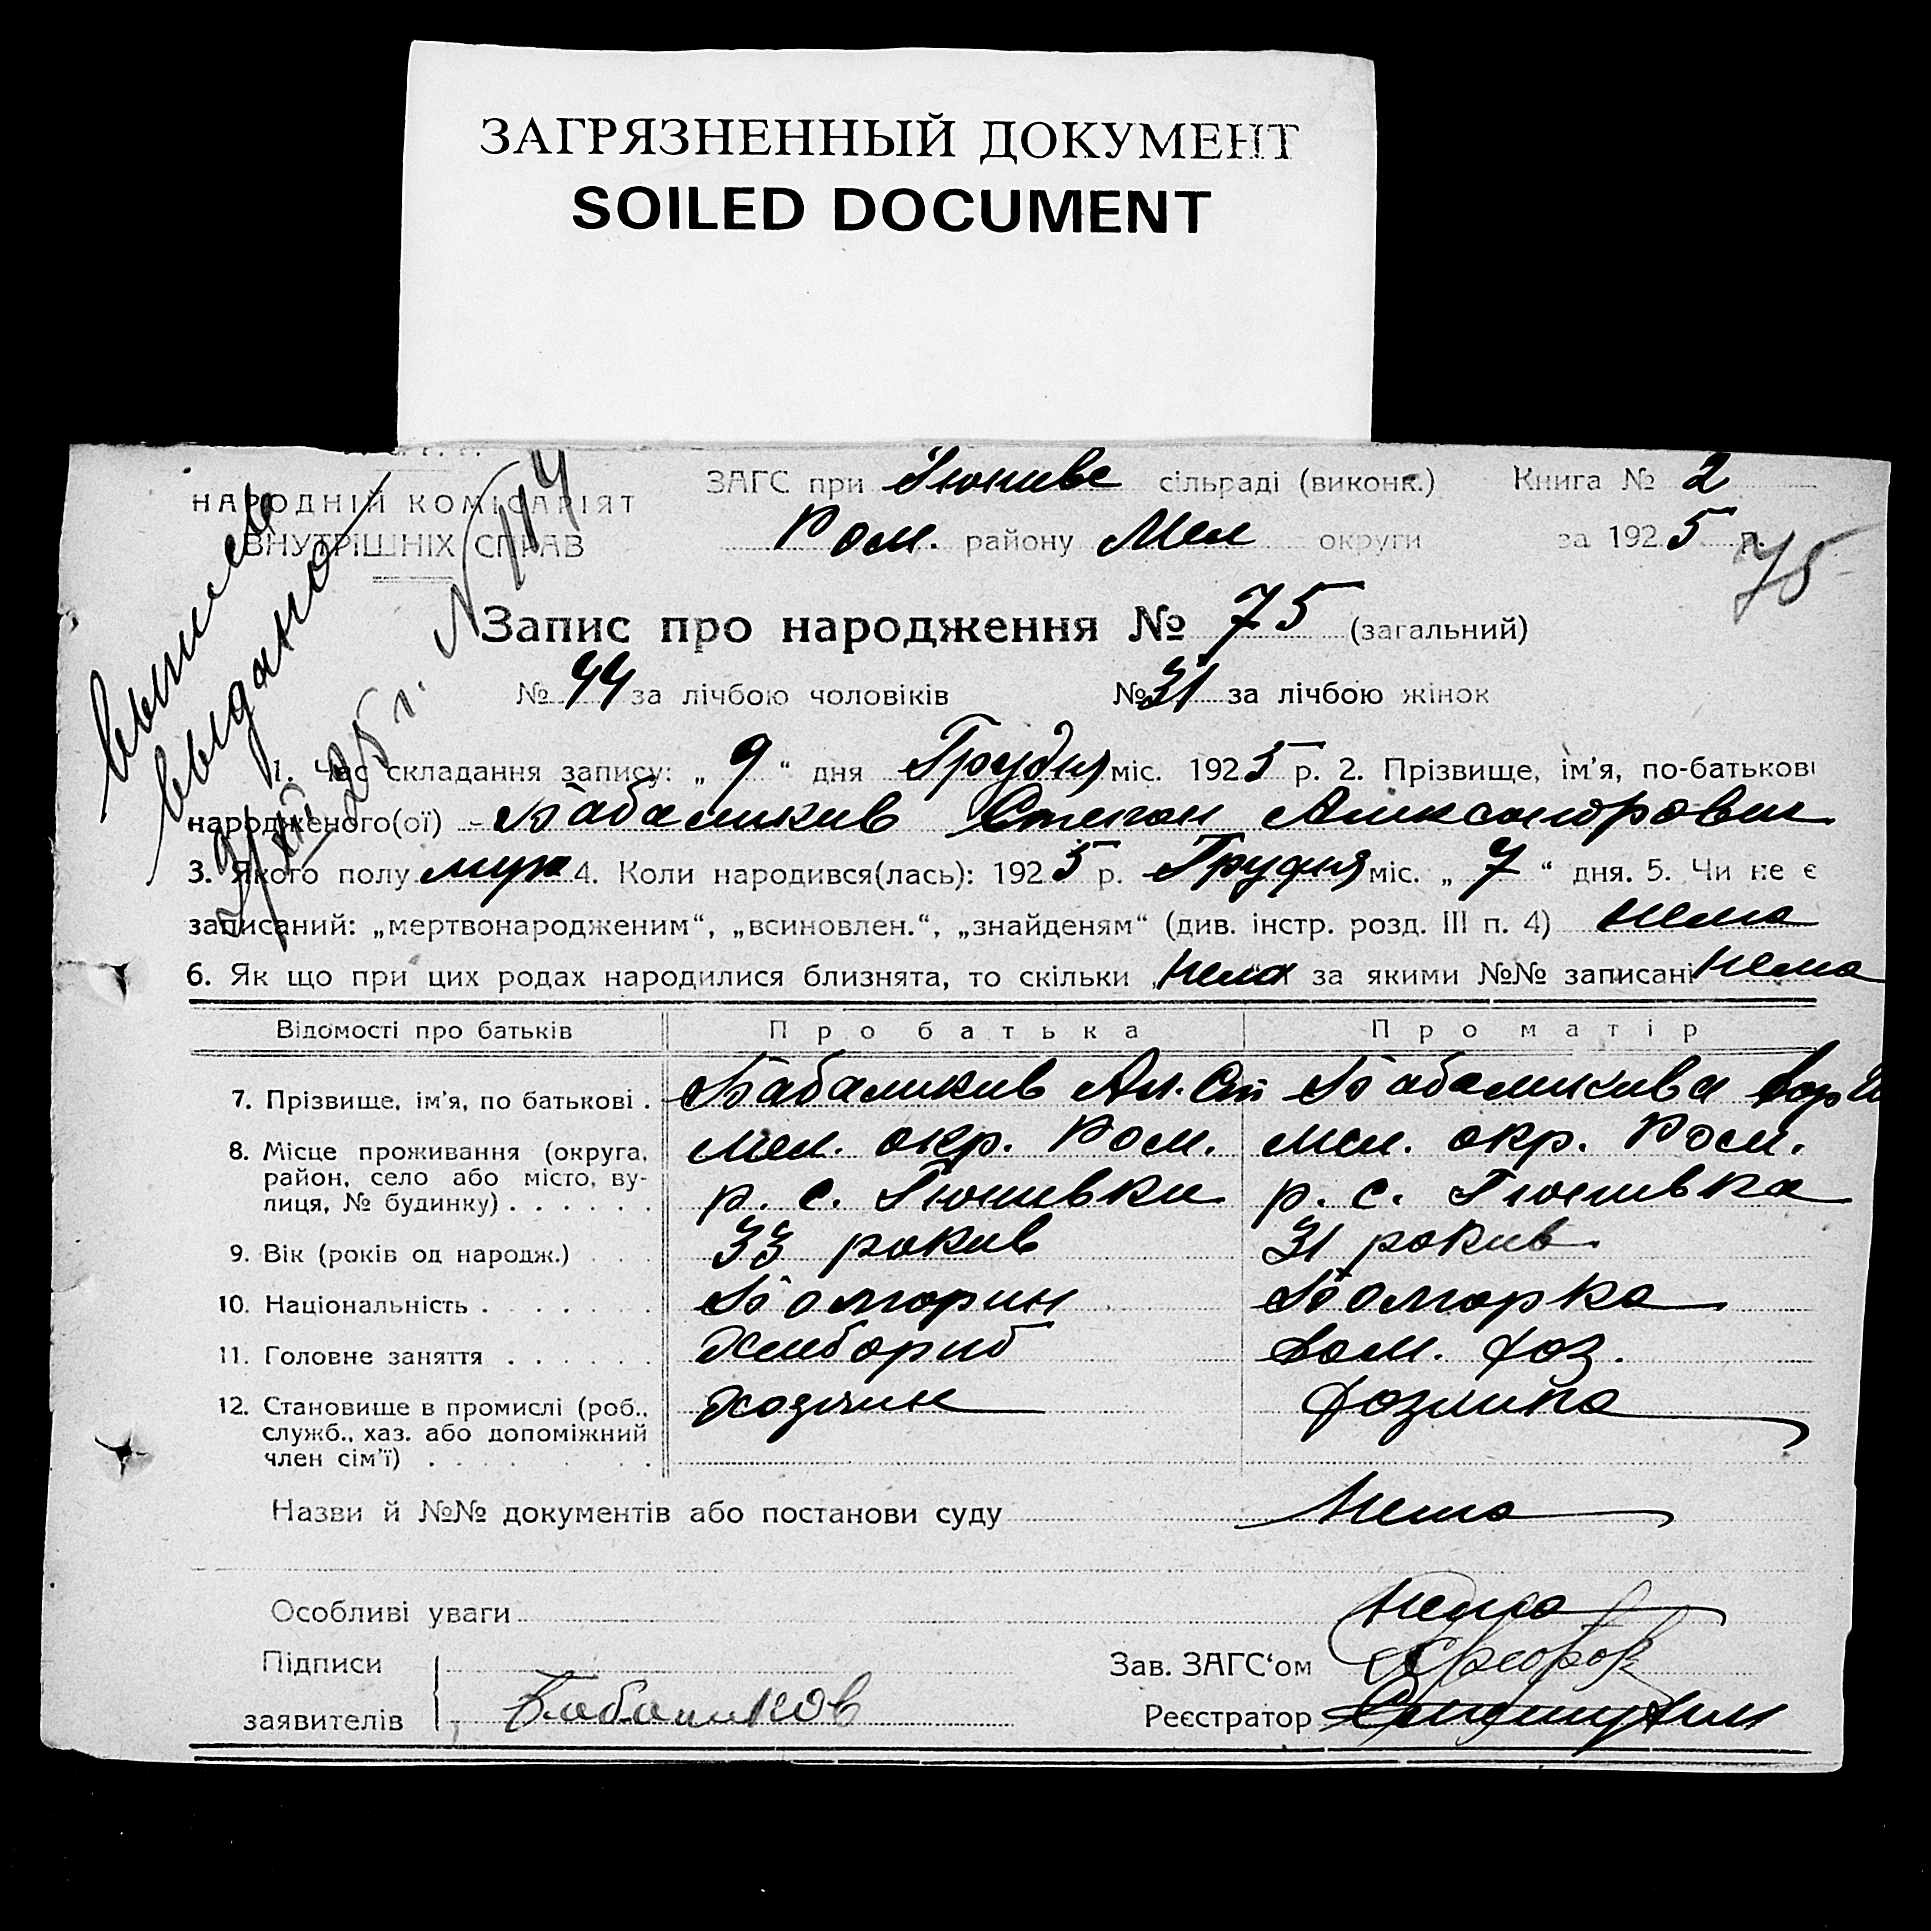 ЗАГРЯЗНЕННЫЙ ДОКУМЕНТ
SOILED DOCUMENT
НАРОДНІЙ КОМІСАРІЯТ
ВНУТРІШНІХ СПРАВ
ЗАГС при Гюнивс сільраді (виконк.) Книга № 2
Ром. району Мел округи за 1925 р.
75
выпись
выдано
9/XII 25 г. N 114
Запис про народження № 75 (загальний)
№ 44 за лічбою чоловіків № 31 за лічбою жінок
1. Час складання запису: „ 9 “ дня Грудня міс. 1925 р. 2. Прізвище, ім’я, по-батькові
народженого(ої) Бабаликив Степан Александрович
3. Якого полу муж 4. Коли народився(лась): 1925 р. Грудня міс. „ 7 “ дня. 5. Чи не є
записаний: „мертвонародженим“, „всиновлен.“, „знайденям“ (див. інстр. розд. III п. 4) нема
6. Як що при цих родах народилися близнята, то скільки нема за якими №№ записані нема
Відомості про батьків Про батька Про матір
7. Прізвище, ім’я, по батькові . Бабаликив Ал. Ст Бабаликива Вар
8. Місце проживання (округа, район, село або місто, ву- лиця, № будинку) . . . . . .
Мел. окр. Ром. Мел. окр. Ром.
р. с. Гюнивка р. с. Гюнивка
9. Вік (років од народж.) . . . 33 рокив 31 рокив
10. Національність . . . . . . . Болгорин Болгорка
11. Головне заняття . . . . . . Хлибориб Дом. хоз.
12. Становище в промислі (роб., служб., хаз. або допоміжний член сім’ї) . . . . . . . .
Хозяин Хозяика
Назви й №№ документів або постанови суду Нема
Особливі уваги Нема
Підписи Зав. ЗАГС‘ом
заявителів Бабаликов Реєстратор